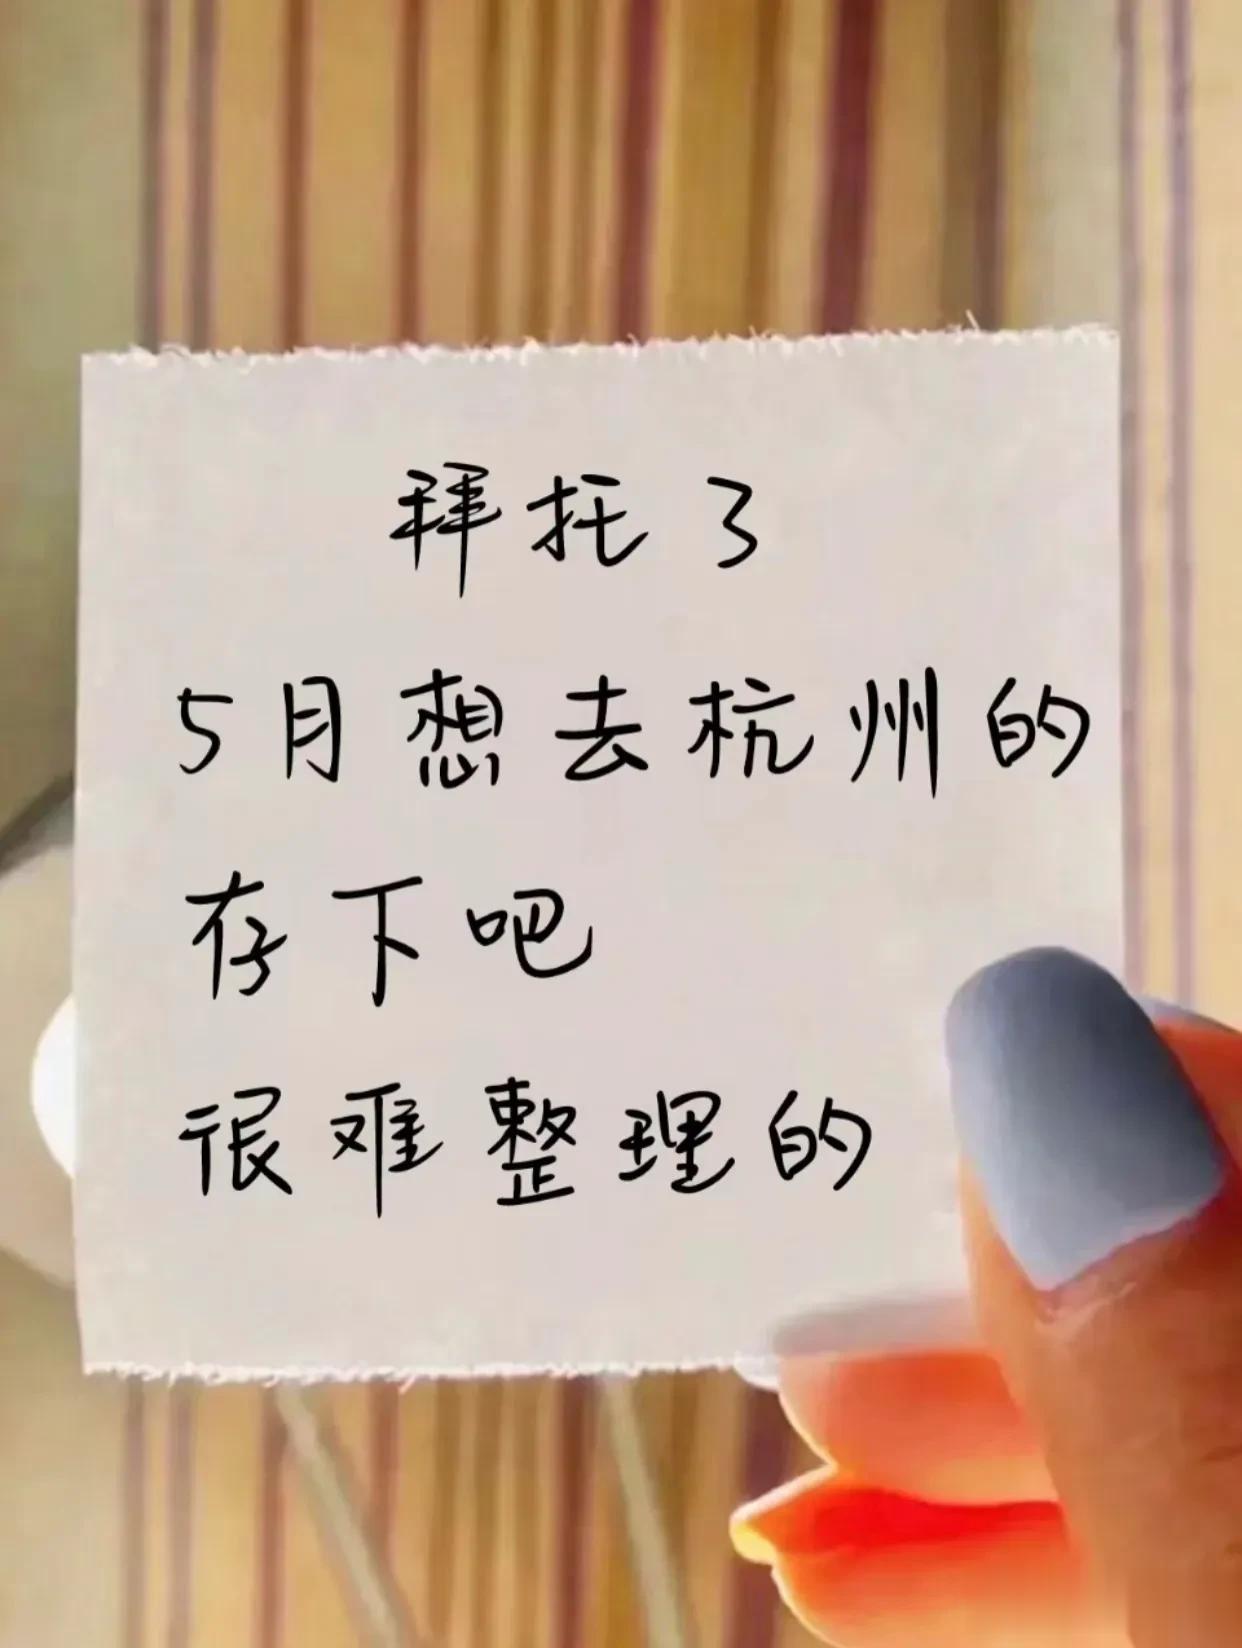 拜托了
5月想去杭州的
存下吧
很难整理的